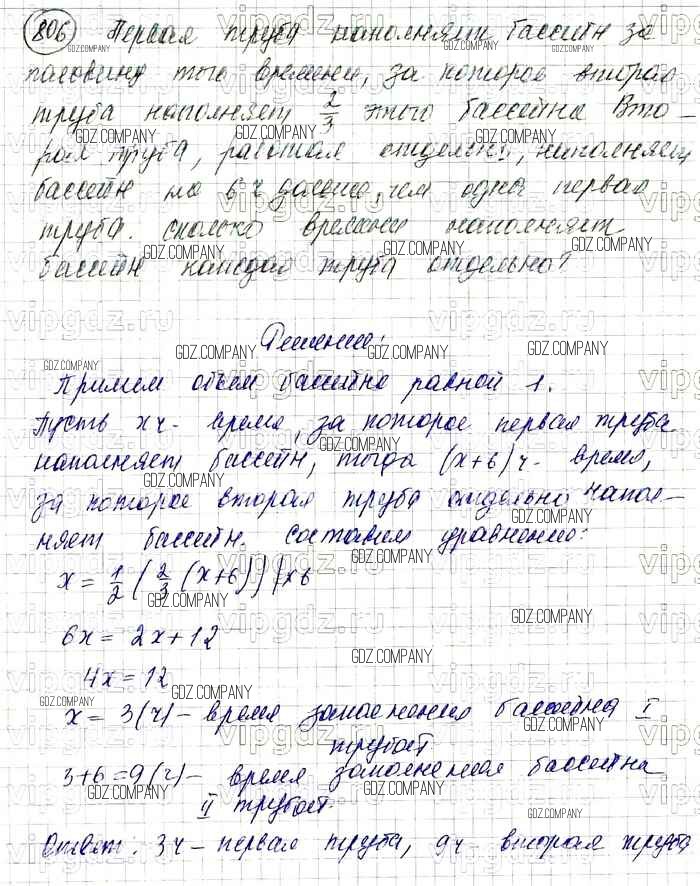 806 Первая труба наполняет бассейн за
половину того времени, за которое вторая
труба наполняет 2/3 этого бассейна Вто-
рая труба, работая отдельно, наполняет
бассейн на 6 ч дольше, чем одна первая
труба. сколько времени наполняет
бассейн каждая труба отдельно?
Решение:
Примем объем бассейна равной 1.
Пусть x ч - время, за которое первая труба
наполняет бассейн, тогда (x+6) ч - время,
за которое вторая труба отдельно напол-
няет бассейн. Составим уравнение:
x = 1/2 (2/3 (x+6)) | x6
6x = 2x+12
4x = 12
x = 3 (ч) - время заполнения бассейна I
трубой
3+6 = 9 (ч) - время заполнения бассейна
II трубой
Ответ: 3ч - первая труба, 9ч - вторая труба
GDZ.COMPANY
vipgdz.ru